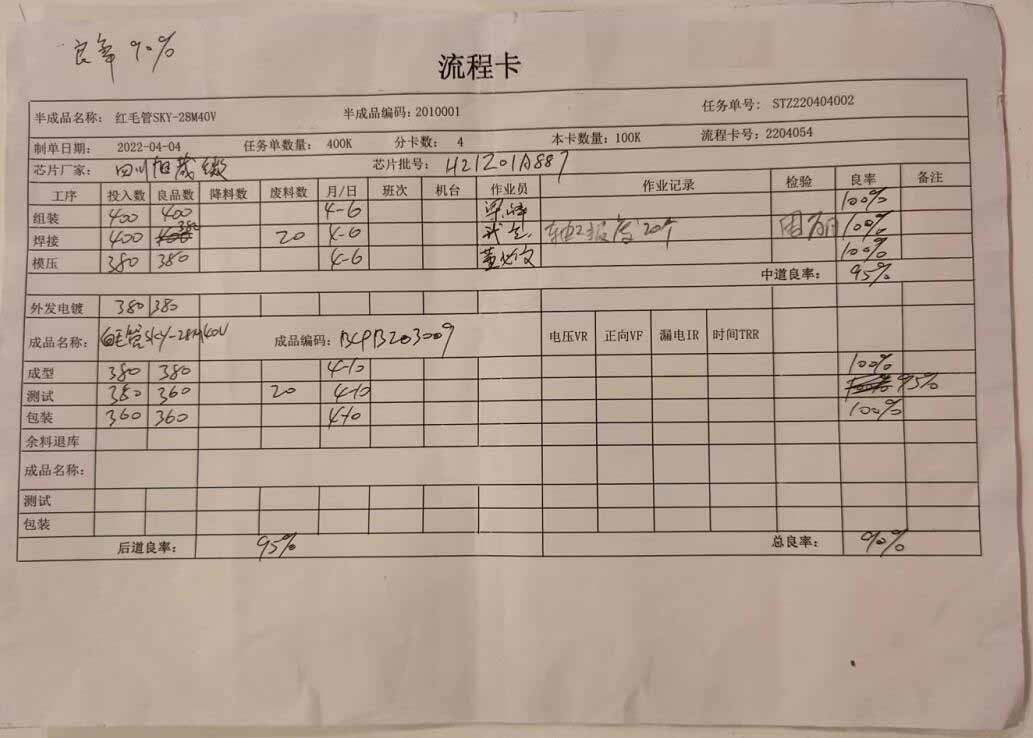 良率 90%
流程卡
半成品名称: 红毛管SKY-28M40V 半成品编码: 2010001 任务单号: STZ220404002
制单日期: 2022-04-04 任务单数量: 400K 分卡数: 4 本卡数量: 100K 流程卡号: 2204054
芯片厂家: 四川旭茂微 芯片批号: H21201A887
工序 投入数 良品数 降料数 废料数 月/日 班次 机台 作业员 作业记录 检验 良率 备注
组装 400 400 4-6 100%
焊接 400 380 20 4-6 20个 100%
模压 380 380 4-6 100%
中道良率: 95%
外发电镀 380 380
成品名称: 白毛管SKY-28M40V 成品编码: BCPB203009 电压VR 正向VF 漏电IR 时间TRR
成型 380 380 4-10 100%
测试 380 360 20 4-10 95%
包装 360 360 4-10 100%
余料退库
成品名称:
测试
包装
后道良率: 95% 总良率: 90%